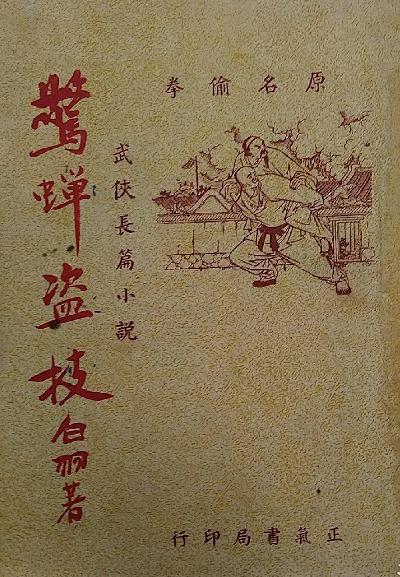 原名偷拳
武俠長篇小説
驚蟬盗技
白羽著
正氣書局印行